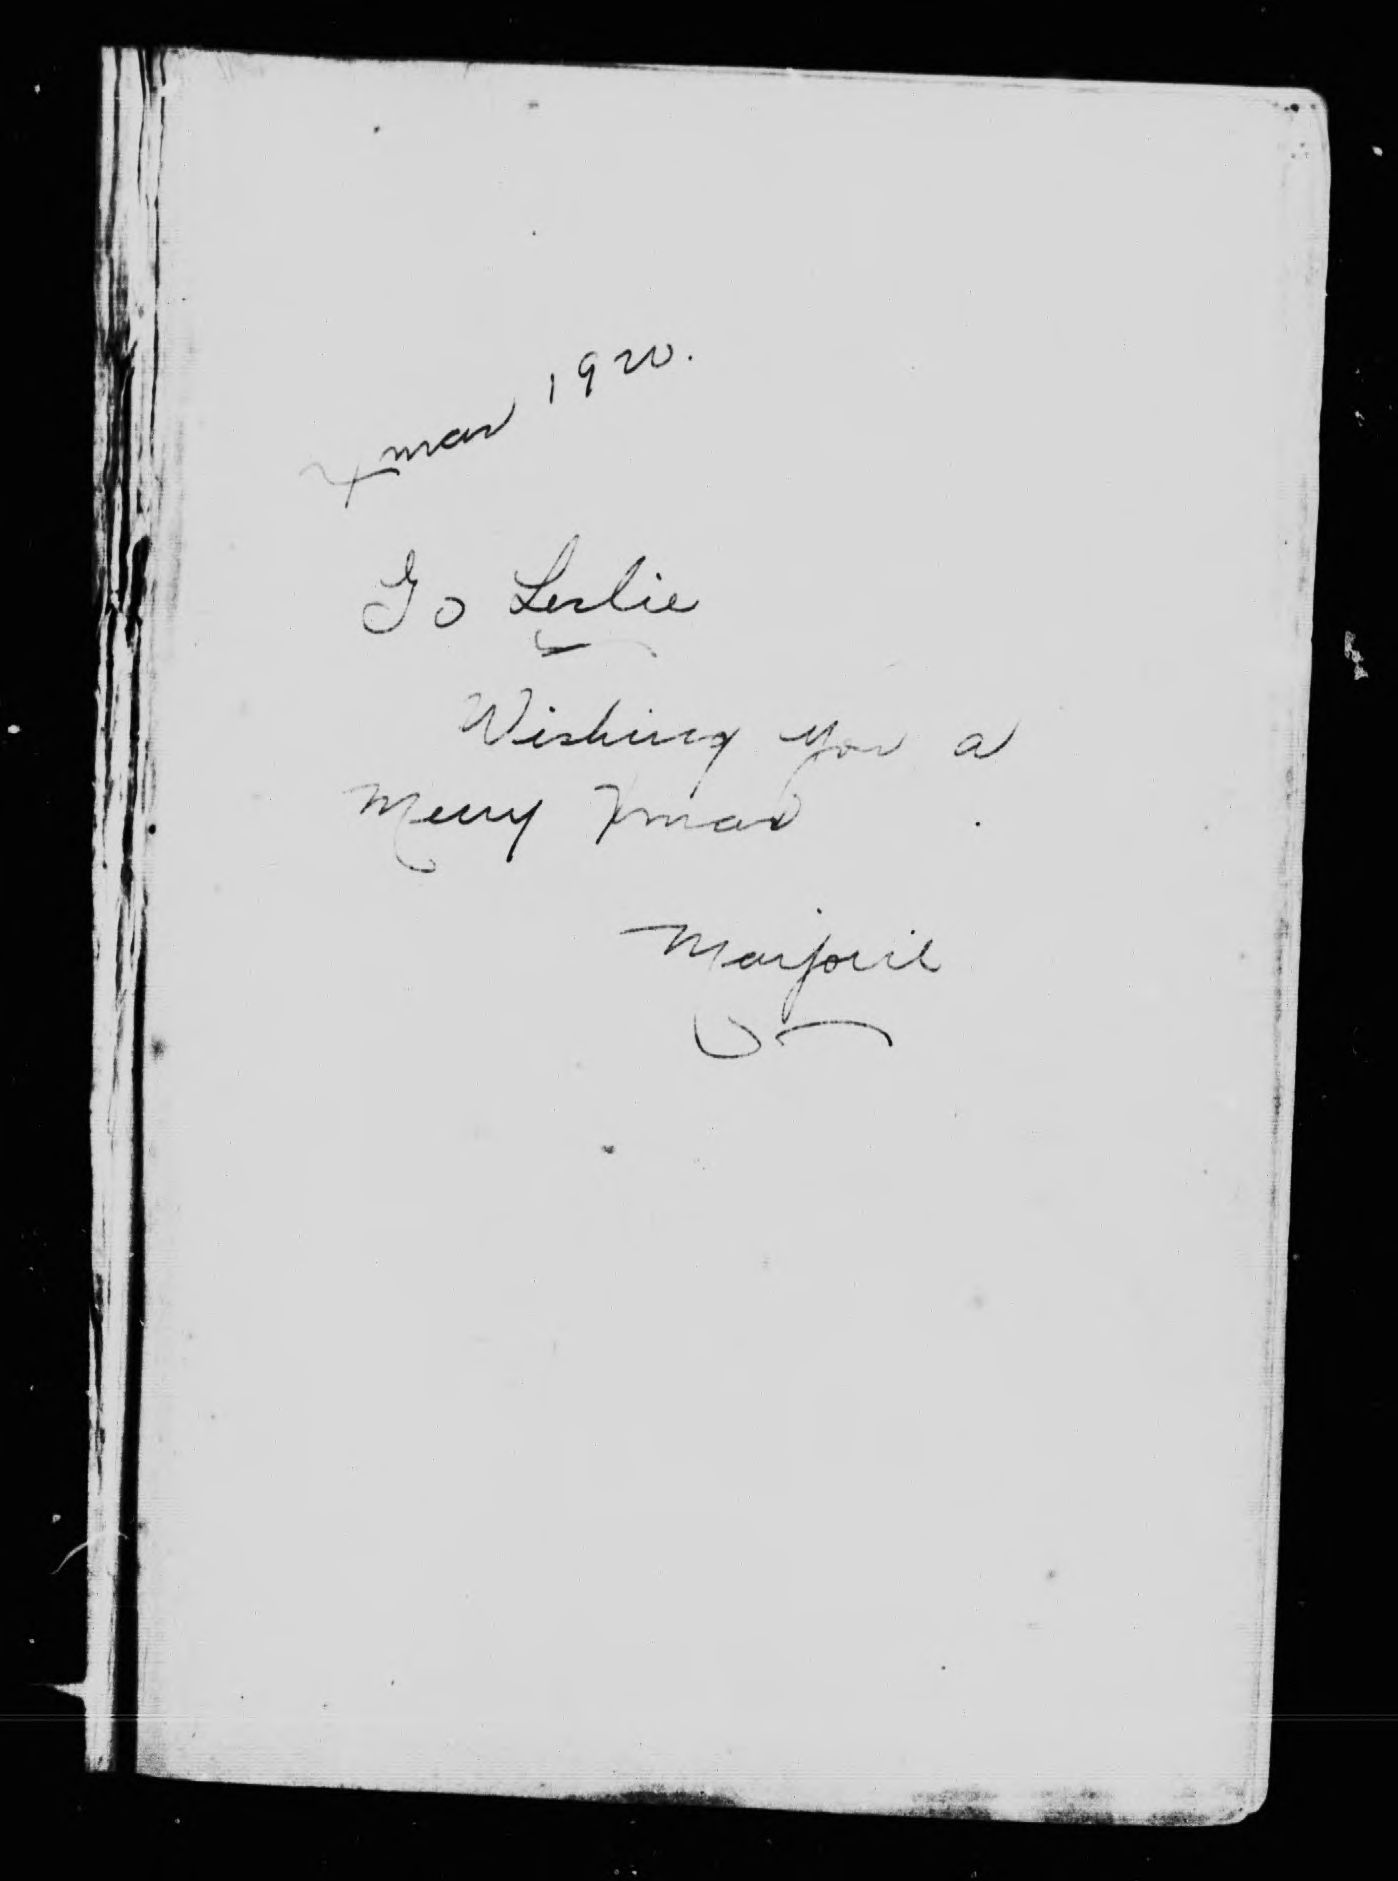 Xmas 1920.
To Leslie
Wishing you a
Merry Xmas
Marjorie